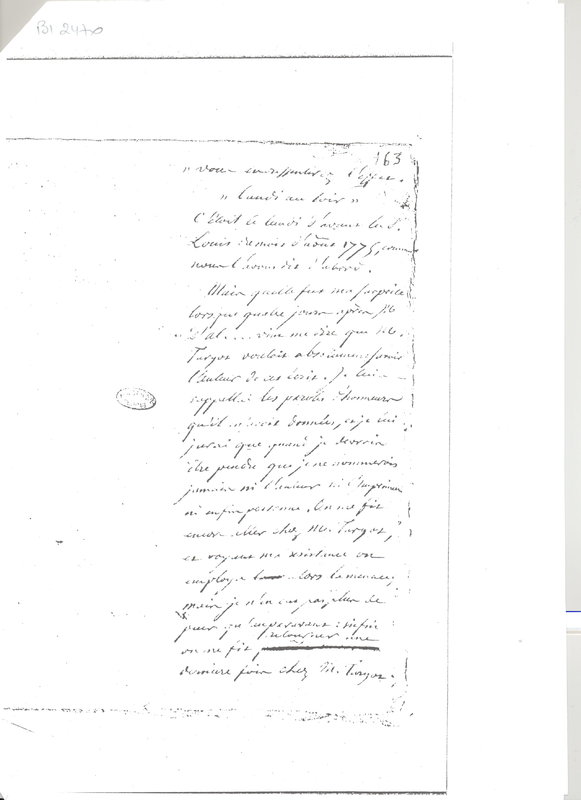 BI 2470
163
" vous en ressentirez l'effet.
" lundi au soir "
C'étoit le lundi d'avant la St.
Louis du mois d'aoust 1775, comme
nous l'avons dit d'abord.
Mais quelle fut ma surprise
lorsque quatre jours après M.
d'Al.... vint me dire que M.
Turgot vouloit absolument savoir
l'auteur de cet écrit. Je lui
rappellai les paroles d'honneur
qu'il m'avoit données, et je lui
jurai que quand je devrois
être pendu que je ne nommerois
jamais ni l'auteur ni l'Imprimeur
ni enfin personne. On me fit
encore aller chez M. Turgot,
et voyant ma résistance on
employa alors la menace;
mais je n'en eus pas plus de
peur qu'auparavant : enfin
retourner une
on me fit
derniere fois chez M. Turgot;